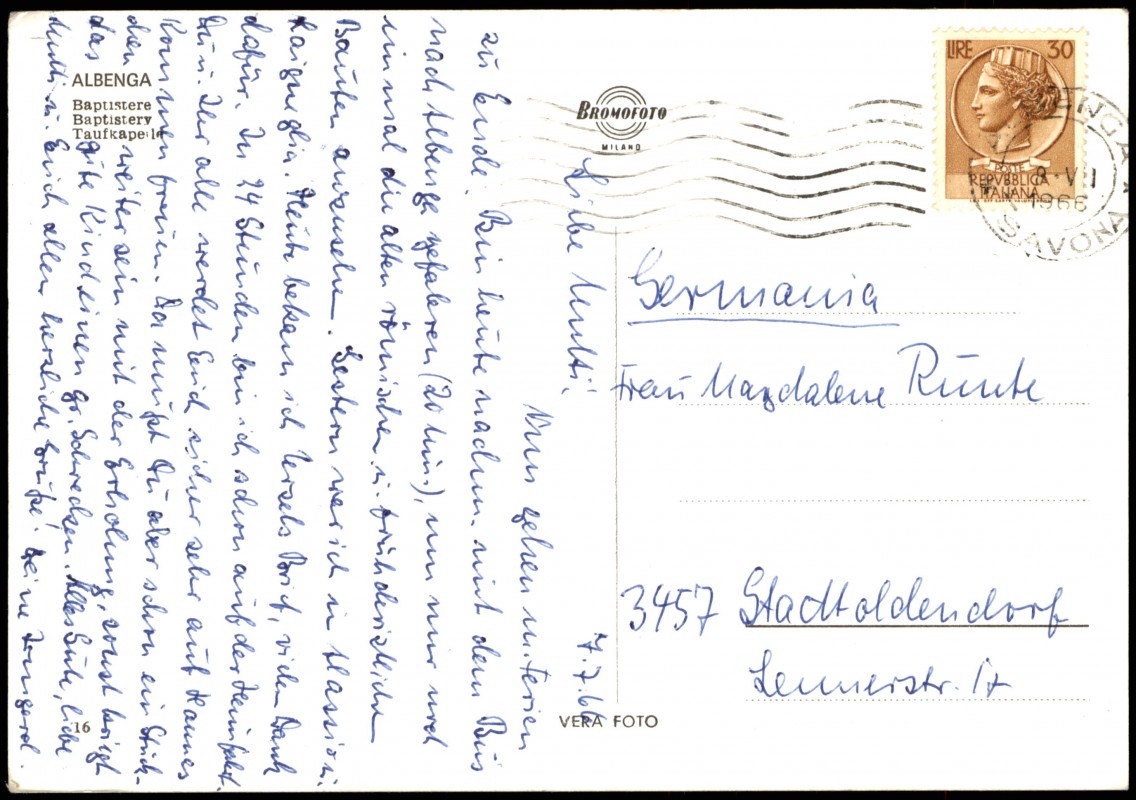 ALBENGA
Baptistere
Baptistery
Taufkapelle
BROMOFOTO
MILANO
LIRE 30
POSTE
REPVBBLICA
ITALIANA
ALBENGA
8 · VII
1966
SAVONA
7.7.66
Liebe Mutti!
Nun gehen m. Ferien
zu Ende. Bin heute nachm. mit dem Bus
nach Albenga gefahren (20 Min), um mir noch
einmal die alten römischen u. frühchristlichen
Bauten anzusehen. Gestern war ich in Alassio u.
Laigueglia. Heute bekam ich Ursels Brief, vielen Dank
dafür. In 24 Stunden bin ich schon auf der Heimfahrt.
Du u. Ihr alle werdet Euch sicher sehr auf Hannes
Kommen freuen. Da mußt Du aber schon ein Stück-
chen weiter sein mit der Erholung, sonst kriegt
das gute Kind einen gr. Schrecken. Alles Gute, liebe
Mutti u. Euch allen herzliche Grüße! Deine Irmgard.
Germania
Frau Magdalene Runte
3457 Stadtoldendorf
Lennerstr. 17
16
VERA FOTO